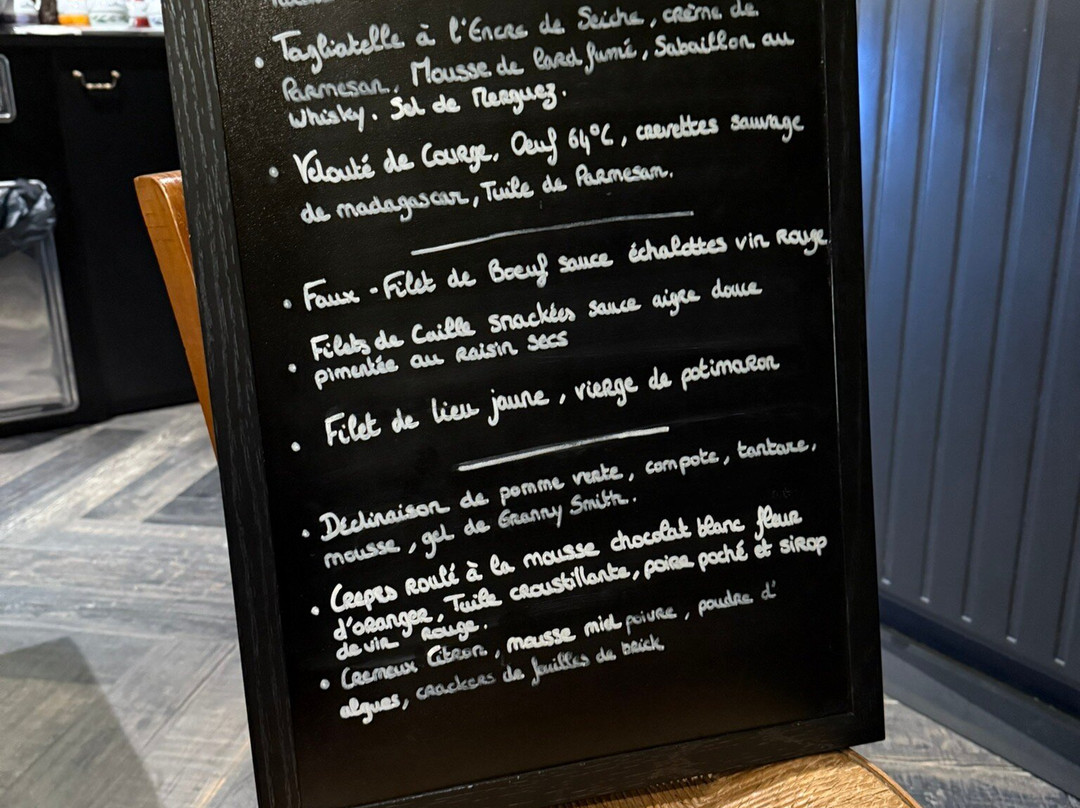 • Tagliatelle à l'Encre de Seiche, crème de
Parmesan, Mousse de lard fumé, Sabaillon au
Whisky. Sel de Merguez.
• Velouté de Courge, Oeuf 64°C, crevettes sauvage
de madagascar, Tuile de Parmesan.
• Faux-Filet de Boeuf sauce échalottes vin Rouge
• Filets de Caille snackées sauce aigre douce
pimentée au raisin secs
• Filet de lieu jaune, vierge de potimaron
• Déclinaison de pomme verte, compote, tartare,
mousse, gel de Granny Smith.
• Crepes roulé à la mousse chocolat blanc fleur
d'oranger, Tuile croustillante, poire poché et sirop
de vin rouge.
• Cremeux Citron, mousse miel poivre, poudre d'
algues, crackers de feuilles de brick